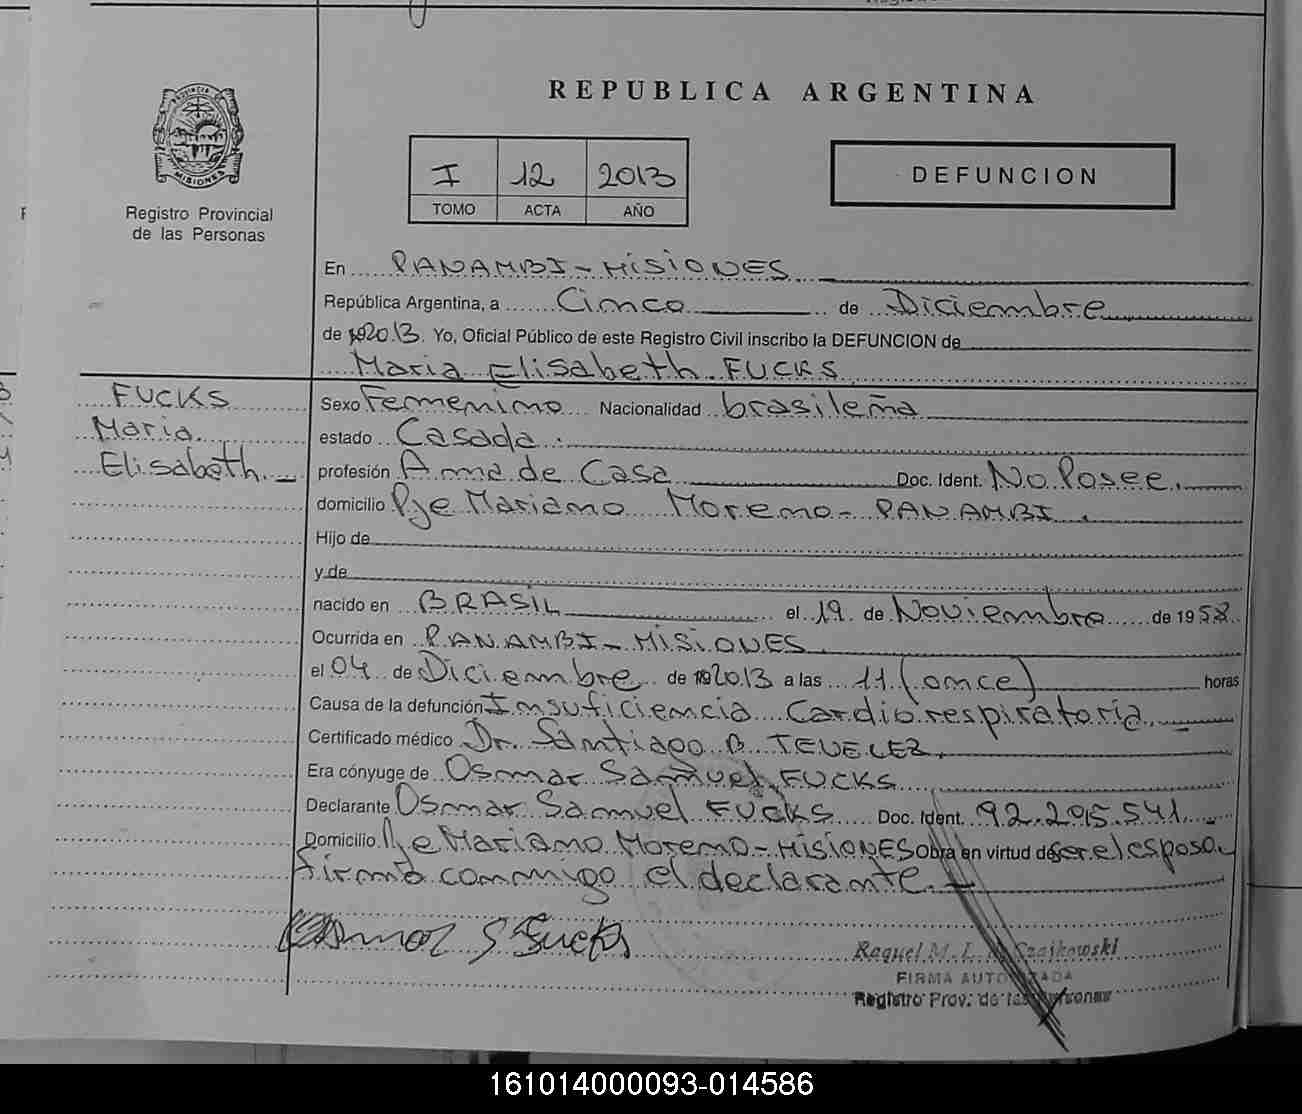 REPUBLICA ARGENTINA
PROVINCIA DE MISIONES
Registro Provincial
de las Personas
I 12 2013
TOMO ACTA AÑO
DEFUNCION
En PANAMBI - MISIONES
República Argentina, a Cinco de Diciembre
de 2013. Yo, Oficial Público de este Registro Civil inscribo la DEFUNCION de
Maria Elisabeth FUCKS
FUCKS
Maria
Elisabeth.
Sexo Femenino Nacionalidad brasileña
estado Casada.
profesión Ama de Casa Doc. Ident. No Posee.
domicilio Pje Mariano Moreno - PANAMBI.
Hijo de
y de
nacido en BRASIL el 19 de Noviembre de 1958
Ocurrida en PANAMBI - MISIONES
el 04 de Diciembre de 2013 a las 11 (once) horas
Causa de la defunción Insuficiencia Cardiorespiratoria
Certificado médico Dr. Santiago B
Era cónyuge de Osmar Samuel FUCKS
Declarante Osmar Samuel FUCKS Doc. Ident. 92.295.541.
Domicilio Pje Mariano Moreno - MISIONES Obra en virtud de ser el esposo.
firma conmigo el declarante. -
Osmar S Fucks
Raquel M. L. Czajkowski
FIRMA AUTORIZADA
Registro Prov. de las Personas
161014000093-014586